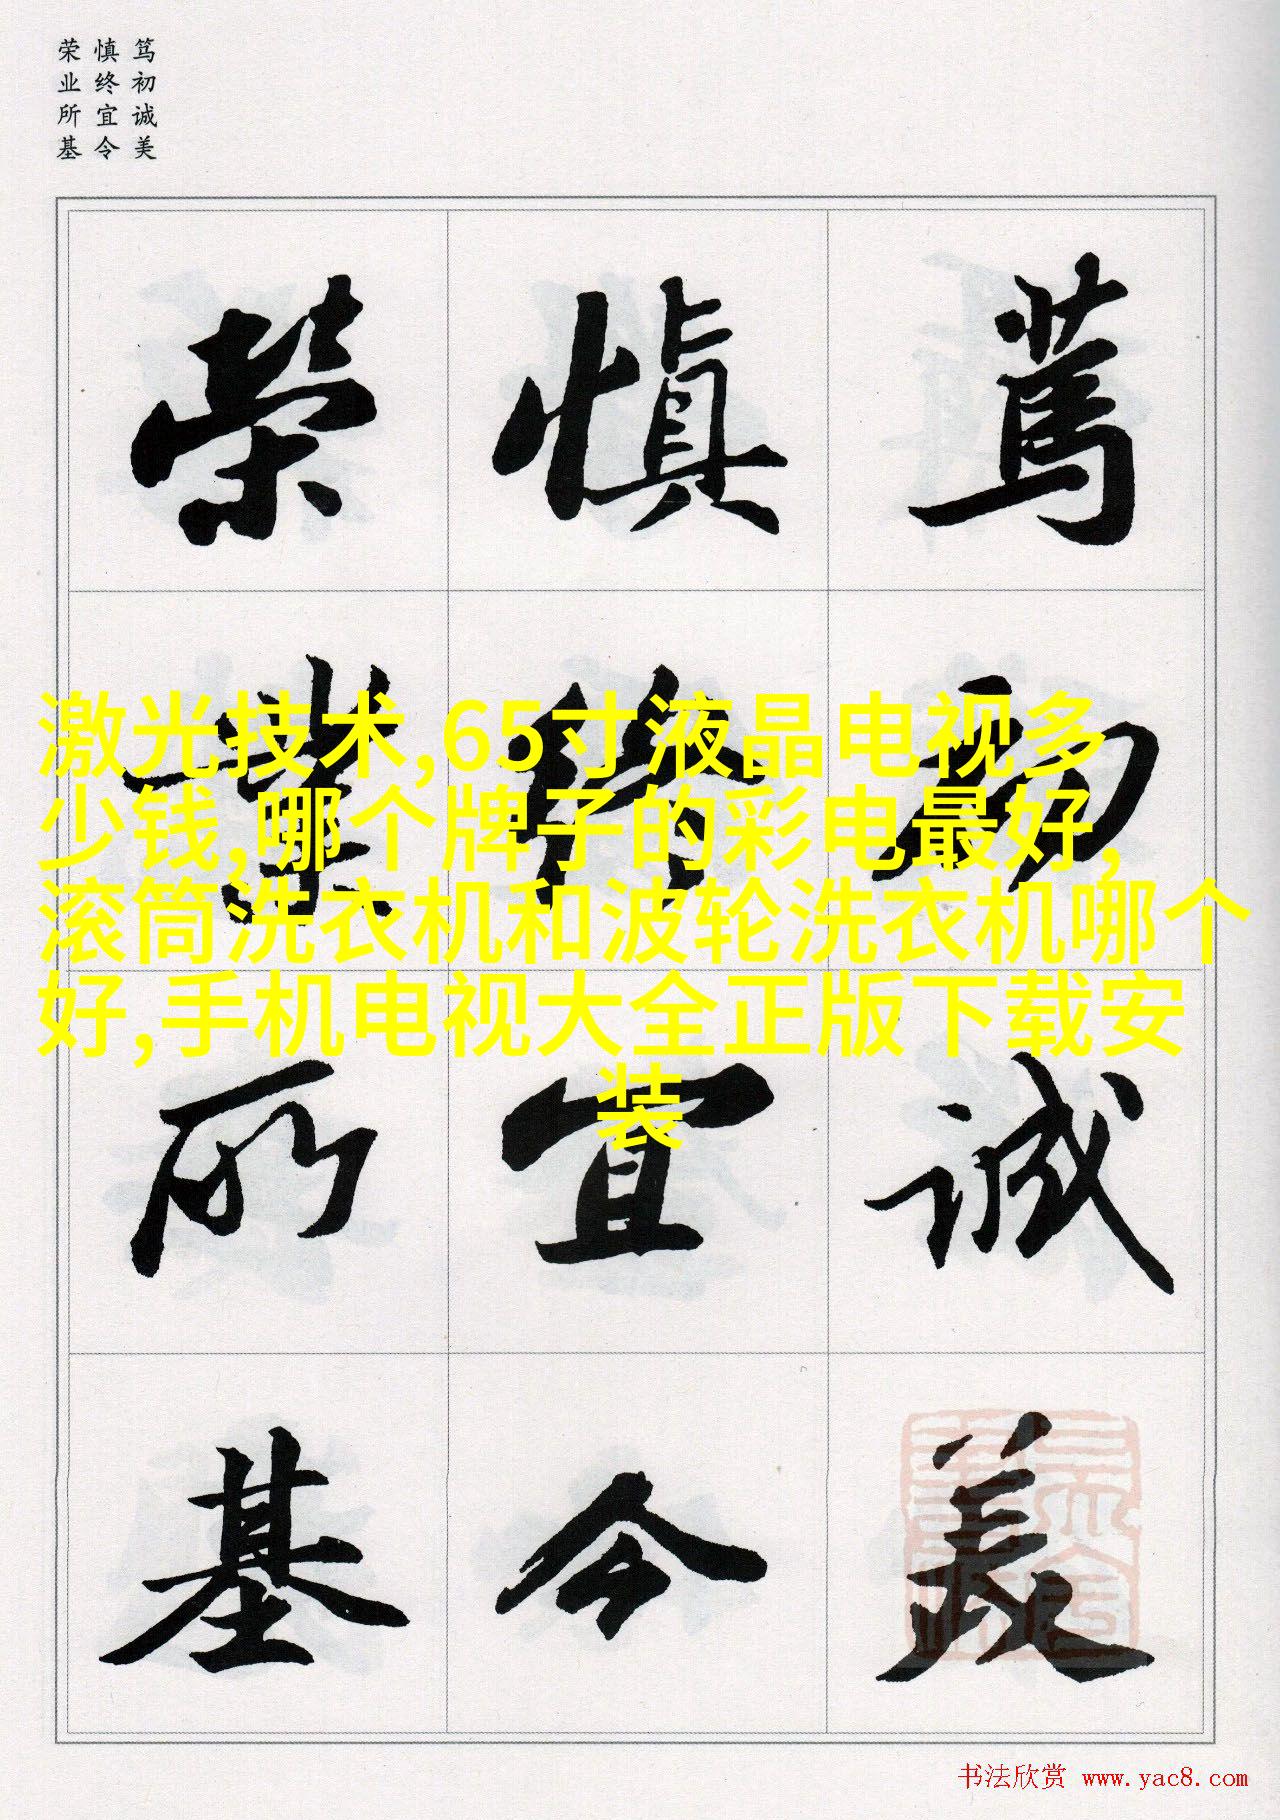 笃初诚美
慎终宜令
荣业所基
篤初誠美
慎終宜令
榮業所基
激光技术,65寸液晶电视多
少钱,哪个牌子的彩电最好,
滚筒洗衣机和波轮洗衣机哪个
好,手机电视大全正版下载安
装
书法欣赏 www.yac8.com